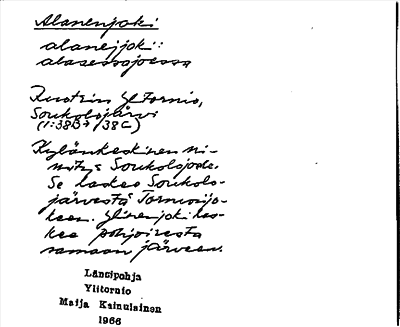 Alanenjoki
alanejjoki:
alasessajoessa
Ruotsin Yl Tornio,
Soukolojärvi
(1:38B7/38C)
Kyläinkeskinen ni-
mitys Soukolojoda.
Se laskee Soukolo-
järvestä Tornionjo-
keen. Ylinenjoki las-
kee pohjoisesta
samaan järveen.
Länsipohja
Ylitornio
Maija Kainulainen
1966